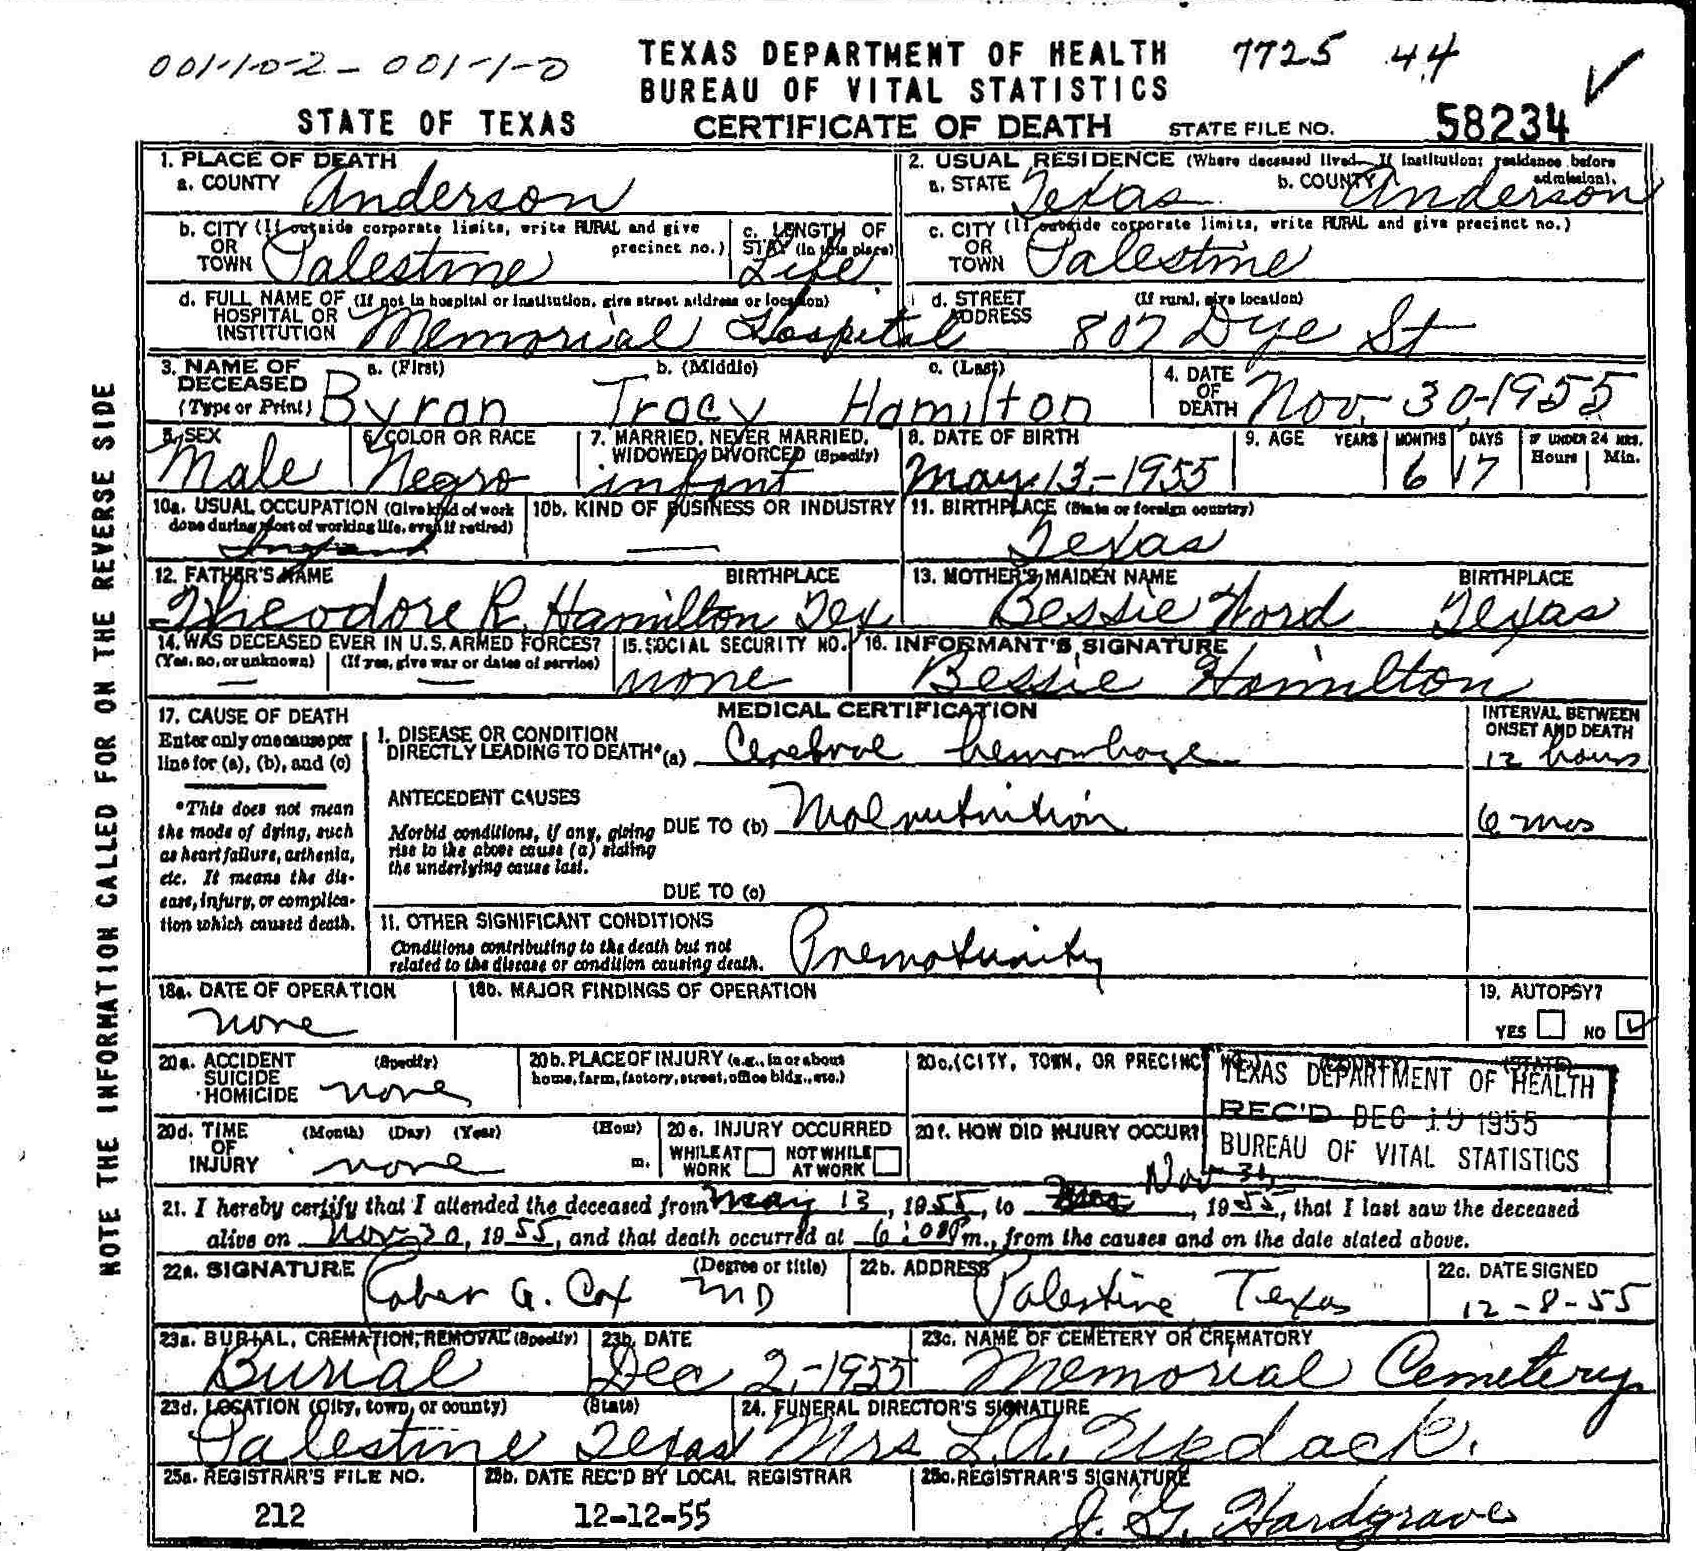 001-10-2-001-1-0
TEXAS DEPARTMENT OF HEALTH 7725 44
BUREAU OF VITAL STATISTICS
STATE OF TEXAS CERTIFICATE OF DEATH STATE FILE NO. 58234
1. PLACE OF DEATH 2. USUAL RESIDENCE (Where deceased lived. If institution: residence before admission).
a. COUNTY Anderson a. STATE Texas b. COUNTY Anderson
b. CITY (If outside corporate limits, write RURAL and give precinct no.) OR TOWN Palestine c. LENGTH OF STAY (in this place) Life c. CITY (If outside corporate limits, write RURAL and give precinct no.) OR TOWN Palestine
d. FULL NAME OF (If not in hospital or institution, give street address or location) HOSPITAL OR INSTITUTION Memorial Hospital d. STREET ADDRESS (If rural, give location) 807 Dye St
3. NAME OF DECEASED (Type or Print) a. (First) Byron b. (Middle) Tracy c. (Last) Hamilton 4. DATE OF DEATH Nov. 30, 1955
5. SEX Male 6. COLOR OR RACE Negro 7. MARRIED, NEVER MARRIED, WIDOWED, DIVORCED (Specify) infant 8. DATE OF BIRTH May 13, 1955 9. AGE YEARS MONTHS 6 DAYS 17 IF UNDER 24 HRS. Hours Min.
10a. USUAL OCCUPATION (Give kind of work done during most of working life, even if retired) Infant 10b. KIND OF BUSINESS OR INDUSTRY — 11. BIRTHPLACE (State or foreign country) Texas
12. FATHER'S NAME BIRTHPLACE Theodore R. Hamilton Tex 13. MOTHER'S MAIDEN NAME BIRTHPLACE Bessie Word Texas
14. WAS DECEASED EVER IN U.S. ARMED FORCES? (Yes, no, or unknown) — (If yes, give war or dates of service) — 15. SOCIAL SECURITY NO. none 16. INFORMANT'S SIGNATURE Bessie Hamilton
17. CAUSE OF DEATH Enter only one cause per line for (a), (b), and (c)
*This does not mean the mode of dying, such as heart failure, asthenia, etc. It means the disease, injury, or complication which caused death.
MEDICAL CERTIFICATION INTERVAL BETWEEN ONSET AND DEATH
I. DISEASE OR CONDITION DIRECTLY LEADING TO DEATH* (a) Cerebral hemorrhage 12 hours
ANTECEDENT CAUSES
Morbid conditions, if any, giving rise to the above cause (a) stating the underlying cause last. DUE TO (b) Malnutrition 6 mos
DUE TO (c)
11. OTHER SIGNIFICANT CONDITIONS
Conditions contributing to the death but not related to the disease or condition causing death. Prematurity
18a. DATE OF OPERATION none 18b. MAJOR FINDINGS OF OPERATION 19. AUTOPSY? YES NO
20a. ACCIDENT SUICIDE HOMICIDE (Specify) none 20b. PLACE OF INJURY (e.g., in or about home, farm, factory, street, office bldg., etc.) 20c. (CITY, TOWN, OR PRECINCT NO.) (COUNTY) (STATE)
TEXAS DEPARTMENT OF HEALTH
REC'D DEC 19 1955
BUREAU OF VITAL STATISTICS
20d. TIME OF INJURY (Month) (Day) (Year) (Hour) none m. 20e. INJURY OCCURRED WHILE AT WORK NOT WHILE AT WORK 20f. HOW DID INJURY OCCUR?
21. I hereby certify that I attended the deceased from May 13, 1955, to Nov 30, 1955, that I last saw the deceased
alive on Nov 30, 1955, and that death occurred at 6:08P m., from the causes and on the date stated above.
22a. SIGNATURE (Degree or title) G. Cox MD 22b. ADDRESS Palestine Texas 22c. DATE SIGNED 12-8-55
23a. BURIAL, CREMATION, REMOVAL (Specify) Burial 23b. DATE Dec 2, 1955 23c. NAME OF CEMETERY OR CREMATORY Memorial Cemetery
23d. LOCATION (City, town, or county) (State) Palestine Texas 24. FUNERAL DIRECTOR'S SIGNATURE Mrs L.A.
25a. REGISTRAR'S FILE NO. 212 25b. DATE REC'D BY LOCAL REGISTRAR 12-12-55 25c. REGISTRAR'S SIGNATURE J. G. Hardgrave
NOTE THE INFORMATION CALLED FOR ON THE REVERSE SIDE